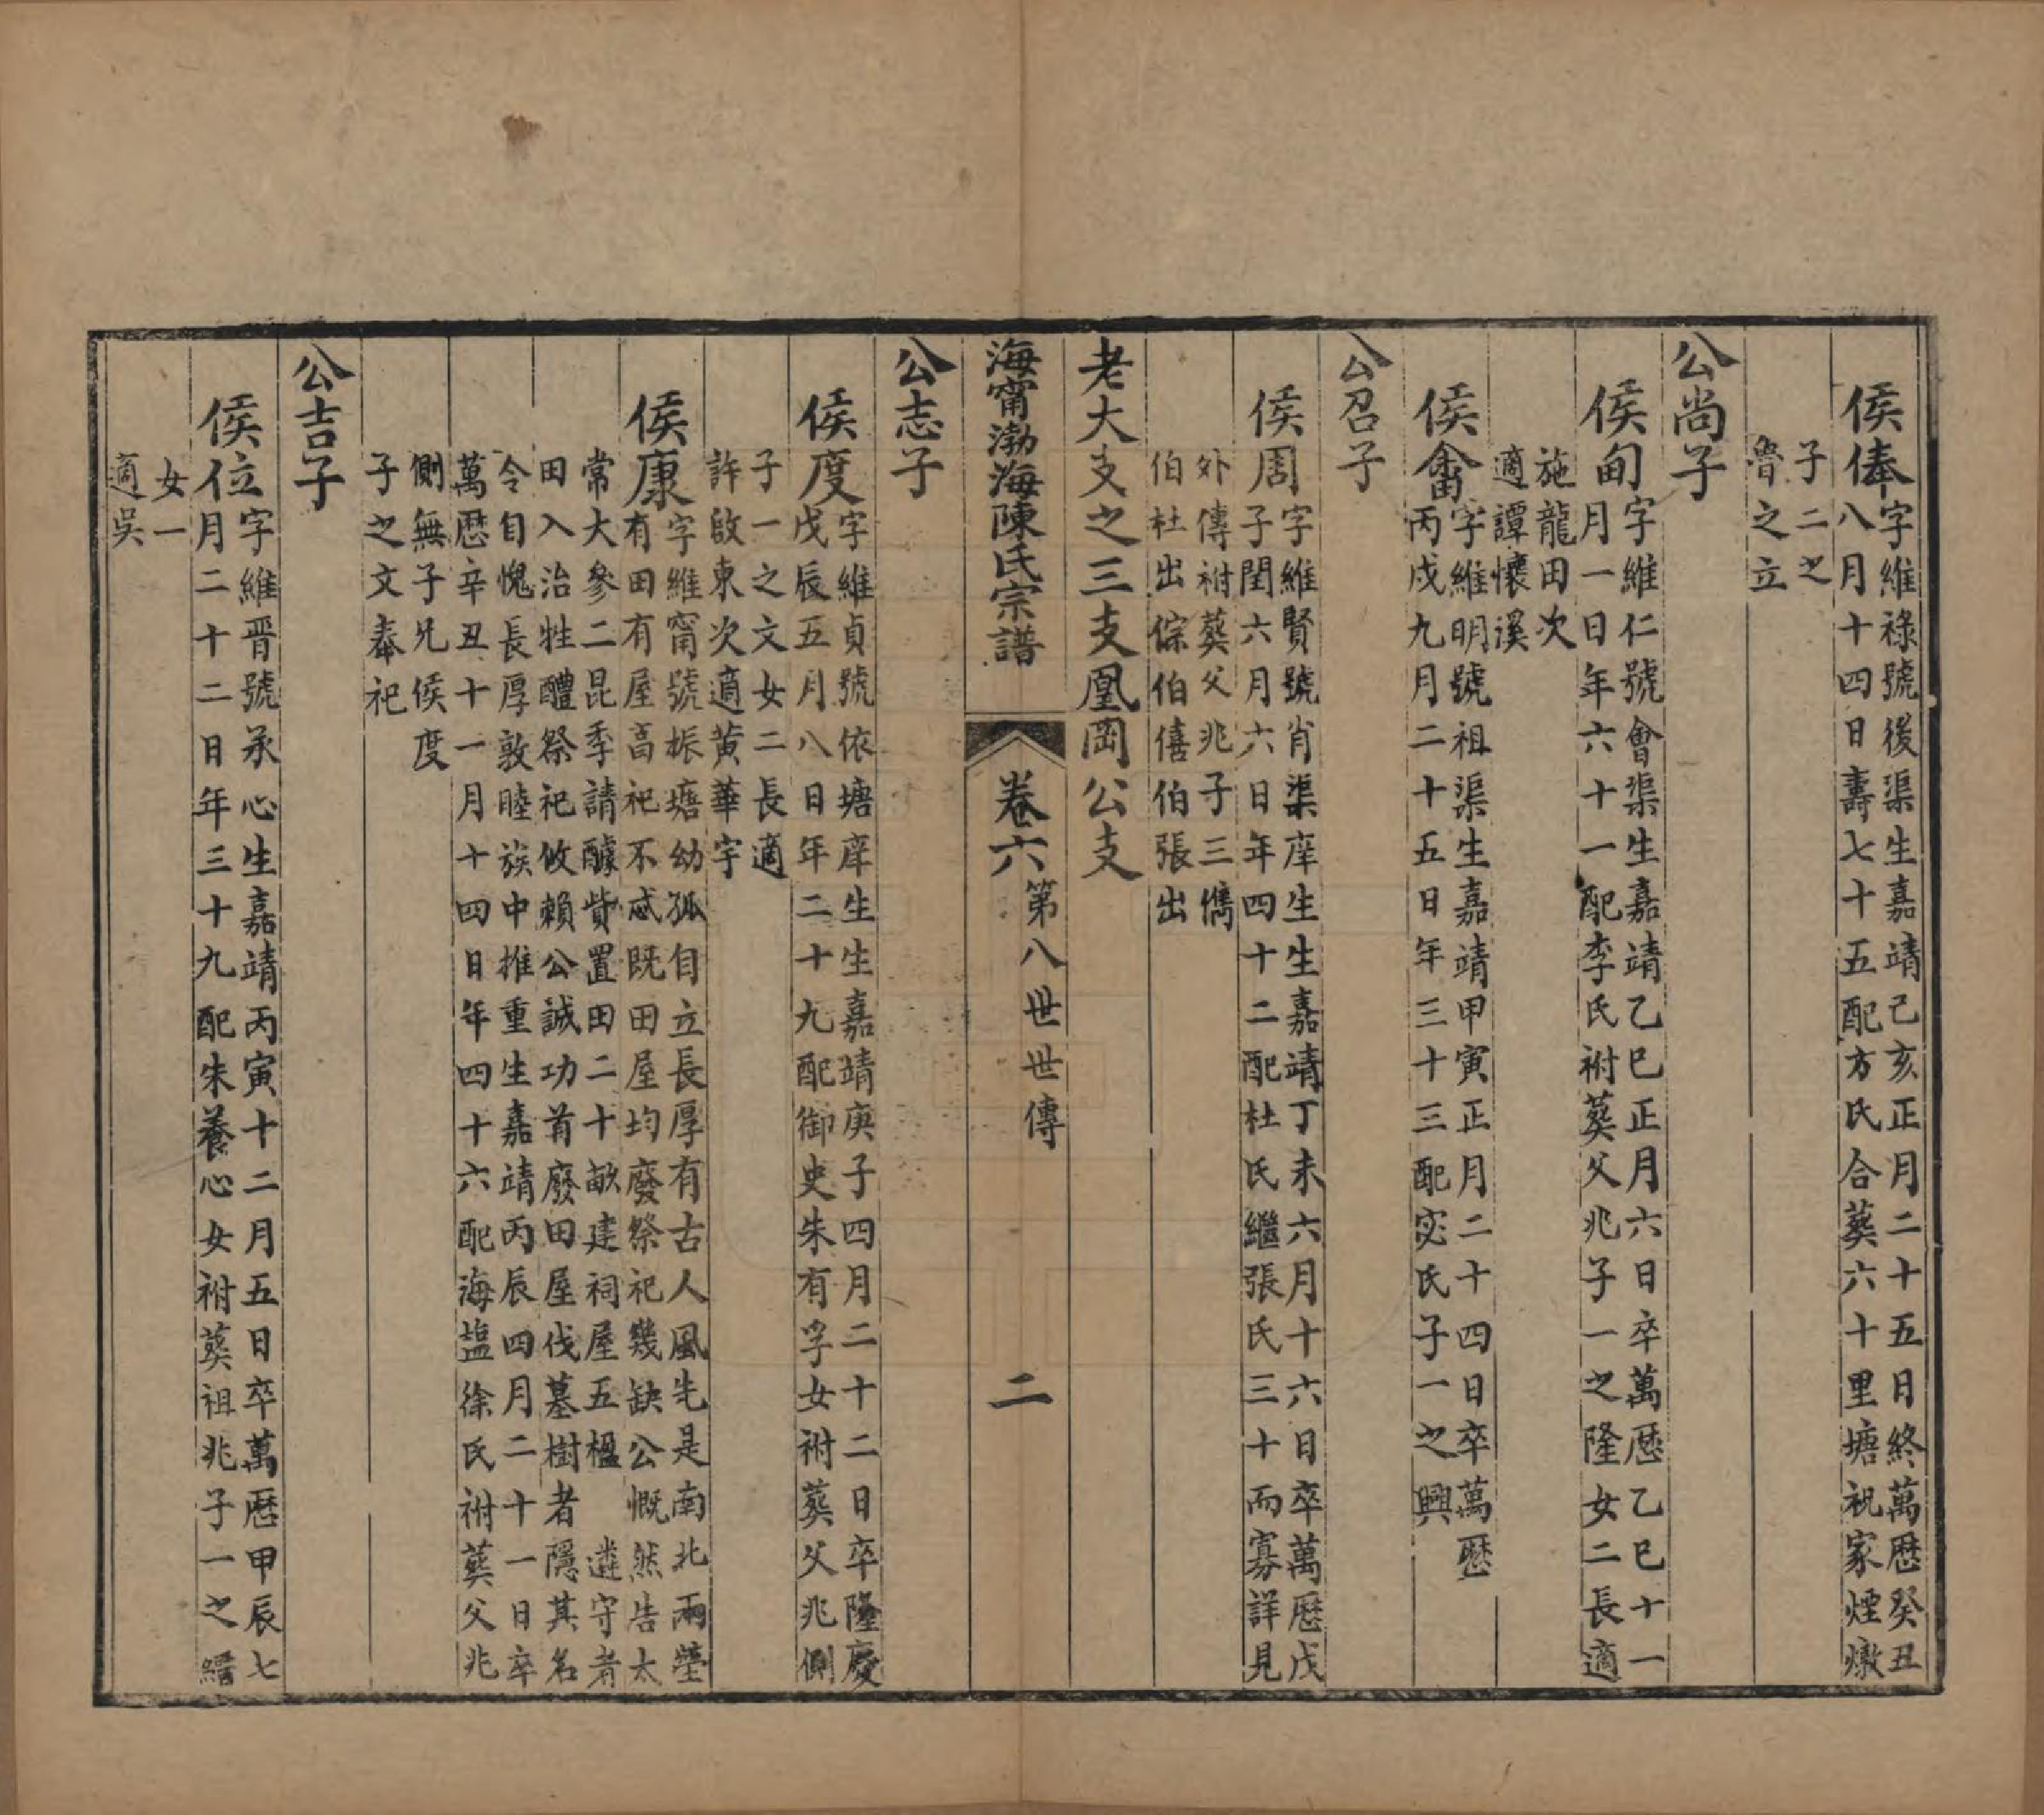 侯俸
字維祿號後渠生嘉靖己亥正月二十五日終萬厯癸丑
八月十四日壽七十五配方氏合葬六十里塘祝家煙燉
子二之
魯之立
公尚子
侯甸
字維仁號會渠生嘉靖乙巳正月六日卒萬厯乙巳十一
月一日年六十一配李氏祔葬父兆子一之隆女二長適
施龍田次
適譚懷溪
侯畬
字維明號祖渠生嘉靖甲寅正月二十四日卒萬厯
丙戌九月二十五日年三十三配宓氏子一之興
公召子
侯周
字維賢號肖渠庠生生嘉靖丁未六月十六日卒萬厯戊
子閏六月六日年四十二配杜氏繼張氏三十而寡詳見
外傳祔葬父兆子三儁
伯杜出倧伯僖伯張出
老大支之三支凰岡公支
海甯渤海陳氏宗譜
卷六
第八世世傳
二
公志子
侯度
字維貞號依塘庠生生嘉靖庚子四月二十二日卒隆慶
戊辰五月八日年二十九配御史朱有孚女祔葬父兆側
子一之文女二長適
許啟東次適黃華宇
侯康
字維甯號振塘幼孤自立長厚有古人風先是南北兩塋
有田有屋畗祀不忒既田屋均廢祭祀幾缺公慨然告太
常大參二昆季請醵貲置田二十畝建祠屋五楹 遴守者
田入治牲醴祭祀攸賴公誠功首廢田屋伐墓樹者隱其名
令自愧長厚敦睦族中推重生嘉靖丙辰四月二十一日卒
萬厯辛丑十一月十四日年四十六配海塩徐氏祔葬父兆
側無子兄侯度
子之文奉祀
公吉子
侯位
字維晋號承心生嘉靖丙寅十二月五日卒萬厯甲辰七
月二十二日年三十九配朱養心女祔葬祖兆子一之縉
女一
適吳